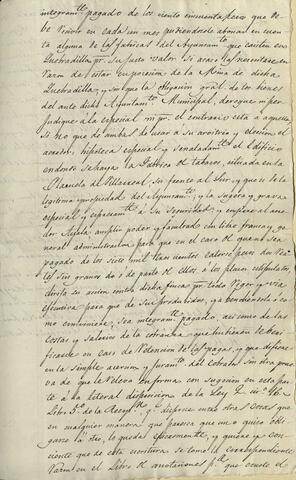 integram.te pagado de los ciento cincuenta pesos que de-
be recivir en cada un mes pudiendosele abonar en cuen-
ta alguna de las fabricas del Ayuntam.to que existen en
Quebradilla p.r su justo valor si acaso las necesitare en
razon de estar en posesion de la Mina de dicha
Quebradilla; y sin que la obligacion gral. de los bienes
del auto dicho Ayuntam.to Municipal, derogue ni per-
judique á la especial ni p.r el contrario esta á aquella
si no que de ambas ha de usar á su arvitrio y eleccion el
acreedor, hipoteca especial y señaladam.te el edificio
en donde se haya la Fabrica de tabacos, situada en la
Plazuela de Villarreal, su frente al Sur, y que es de la
legitima propiedad del Ayuntam.to; y la sugeta y grava
especial y expresam.te á su seguridad; y confiere al acree-
dor amplio poder y facultad con libre franca y ge-
neral administracion para que en el caso de que no sea
pagado de los siete mil trescientos catorce pesos dos rea-
les seis granos ó de parte de ellos á los plazos estipulados,
dirija su accion contra dicha finca por todo rigor y via
ejecutiva para que de sus productos, ya bendiendola ó co-
mo combiniere, sea integram.te pagado, asi como de las
costas y salarios de la cobranza que hubieren de veri-
ficarse en caso de retencion de las pagas, y que difiere
en la simple acercion y juram.to del cobrador sin otra prue-
va de que le releva en forma con sugecion en esta par-
te á la literal disposicion de la Ley 2. tit. 16.
Libro 5.o de la Recop.on q.e dispone entre otras cosas que
en cualquier manera que paresca que uno quiso obli-
garse á otro, lo queda eficasmente, y quiere y con-
ciente que de esta escritura se tome la correspondiente
razon en el Libro de anotaciones p.a que conste el